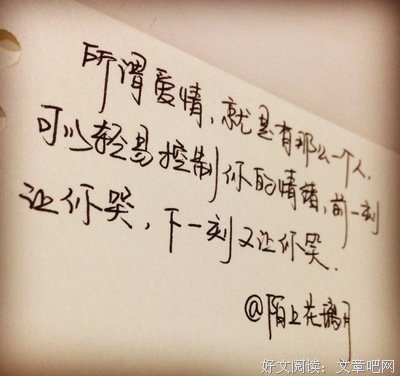 所谓爱情,就是有那么一个人,
可以轻易控制你的情绪,前一刻
让你哭,下一刻又让你哭.
@陌上花璃月
好文阅读：文章吧网